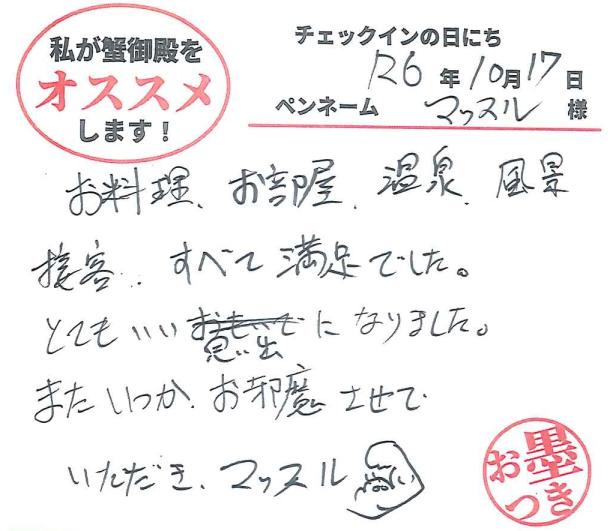 私が蟹御殿を
オススメ
します！
チェックインの日にち
R6年10月17日
ペンネーム マッスル 様
お料理、お部屋、温泉、風景
接客、すべて満足でした。
とてもいいおもいで思い出になりました。
またいつか、お邪魔させて
いただき、マッスル
お墨
つき